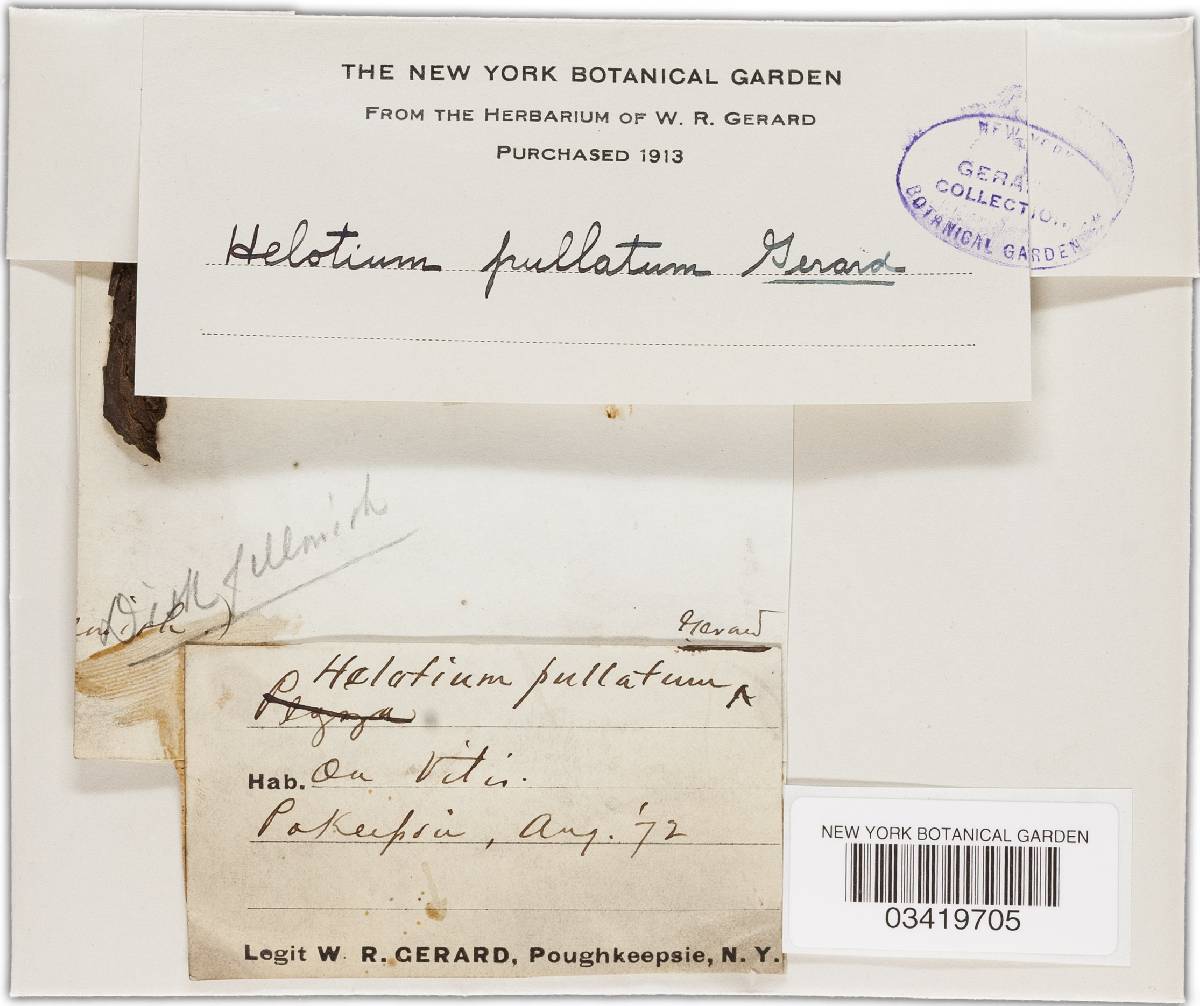 THE NEW YORK BOTANICAL GARDEN
FROM THE HERBARIUM OF W. R. GERARD
PURCHASED 1913
NEW YORK
GERA
COLLECTION
BOTANICAL GARDEN
Helotium pullatum Gerard
Disk
Gerard
Helotium pullatum
Peziza
Hab. On Vitis.
Pokeepsie, Aug. '72
Legit W. R. GERARD, Poughkeepsie, N. Y.
NEW YORK BOTANICAL GARDEN
03419705